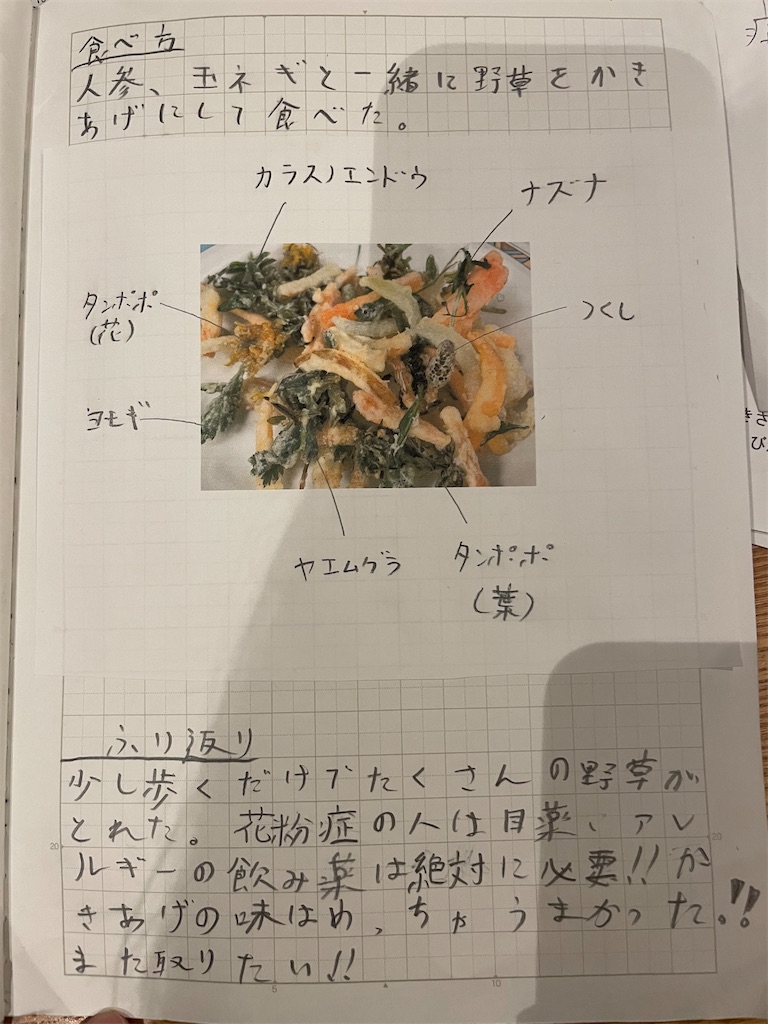 食べ方
人参、玉ネギと一緒に野草をかき
あげにして食べた。
カラスノエンドウ
ナズナ
タンポポ
(花)
つくし
ヨモギ
ヤエムグラ
タンポポ
(葉)
ふり返り
少し歩くだけでたくさんの野草が
とれた。花粉症の人は目薬、アレ
ルギーの飲み薬は絶対に必要!!か
きあげの味はめっちゃうまかった!!
また取りたい!!
20
20
5
10